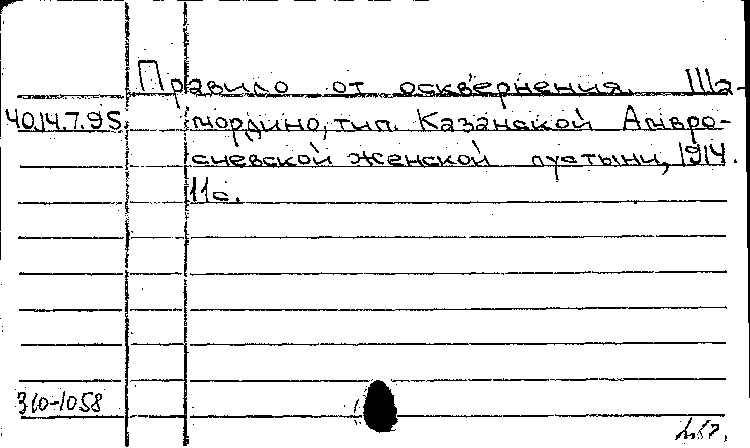 Правило от осквернения. Ша-
40.14.7.95. мордино, тип. Казанской Амвро-
сиевской женской пустыни, 1914.
11с.
310-1058